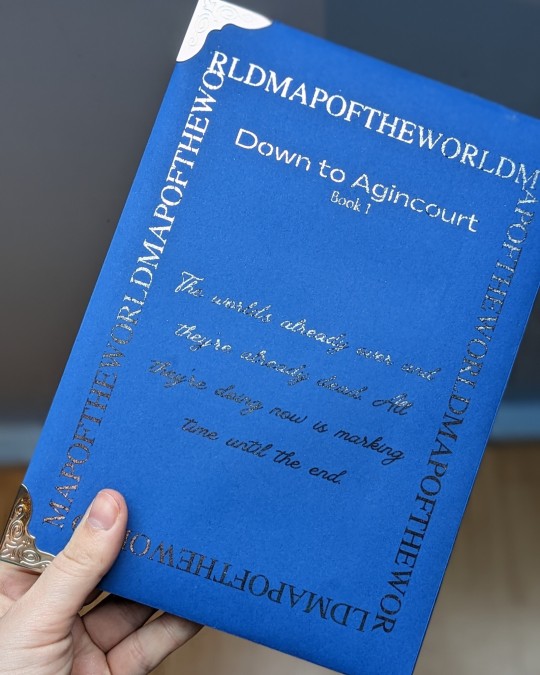 RLDMAPOFTHEWORLDM
Down to Agincourt
Book 1
The world's already over and
they're already dead. All
they're doing now is marking
time until the end.
MAPOFTHEWORLDMAPOFTHEWO
APOFTHEWORLDMAPOFTHEWOR
LDMAPOFTHEWO